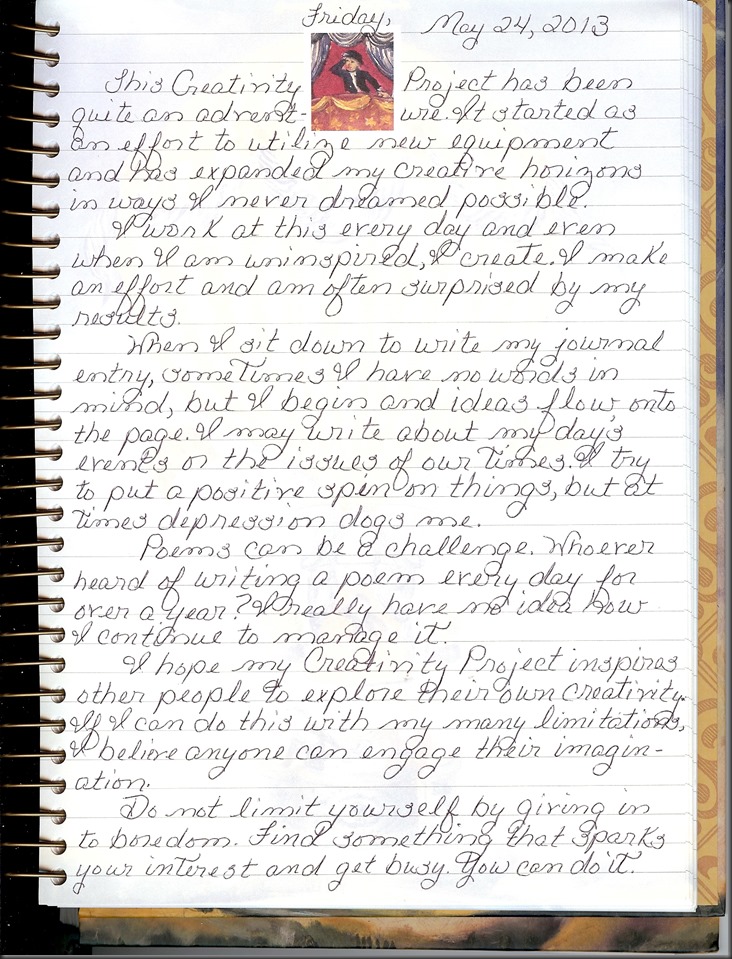 Friday, May 24, 2013
This Creativity Project has been
quite an advent- ure. It started as
an effort to utilize new equipment
and has expanded my creative horizons
in ways I never dreamed possible.
I work at this every day and even
when I am uninspired, I create. I make
an effort and am often surprised by my
results.
When I sit down to write my journal
entry, sometimes I have no words in
mind, but I begin and ideas flow onto
the page. I may write about my day's
events or the issues of our times. I try
to put a positive spin on things, but at
times depression dogs me.
Poems can be a challenge. Whoever
heard of writing a poem every day for
over a year? I really have no idea how
I continue to manage it.
I hope my Creativity Project inspires
other people to explore their own creativity.
If I can do this with my many limitations,
I believe anyone can engage their imagin-
ation.
Do not limit yourself by giving in
to boredom. Find something that sparks
your interest and get busy. You can do it.